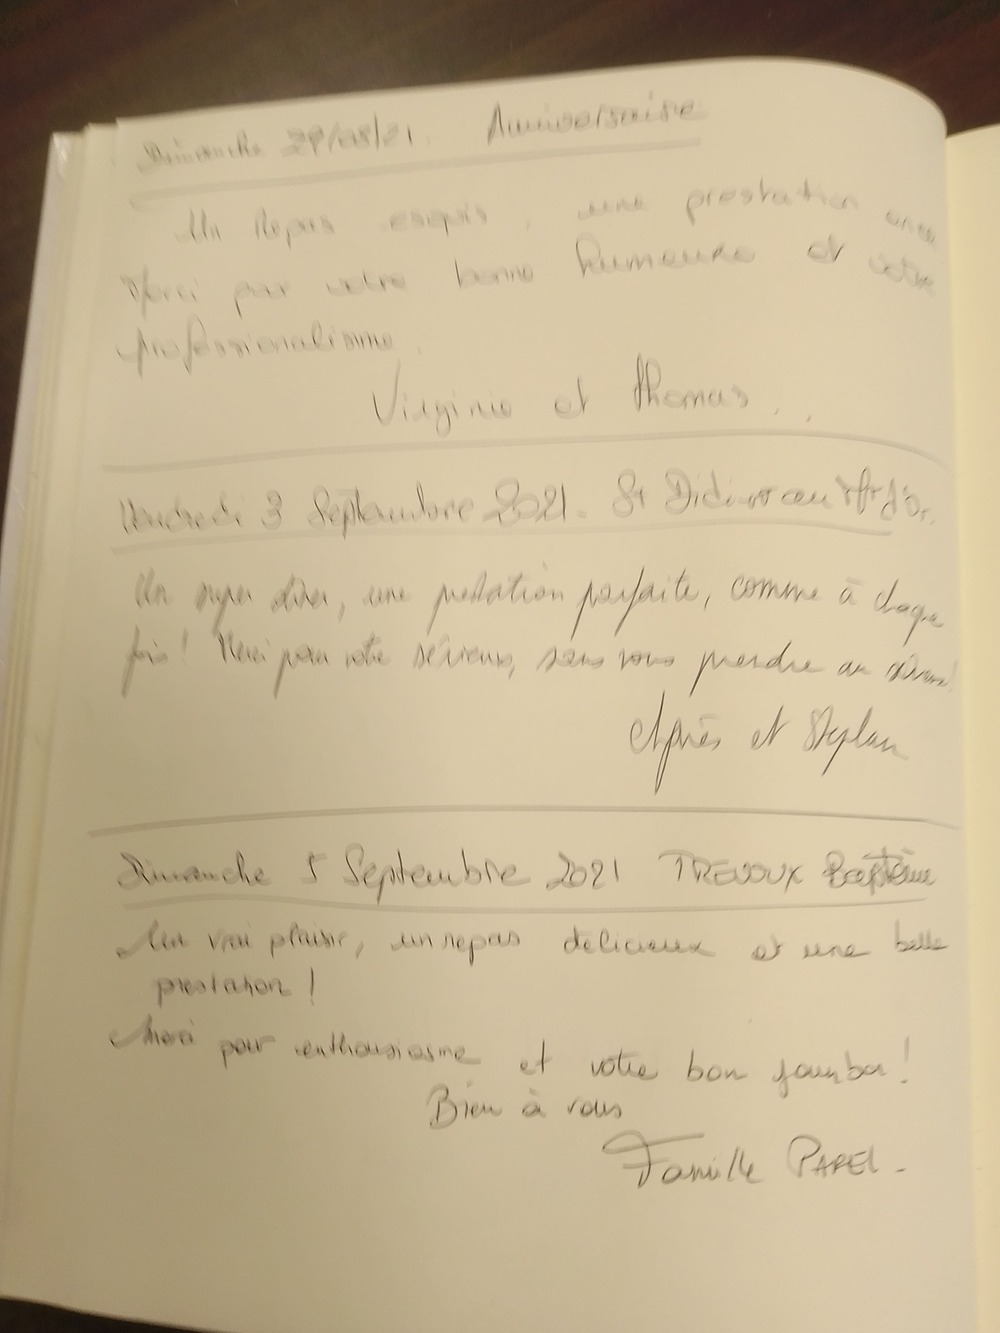 Dimanche 29/08/21. Anniversaire
Un Repas exquis, une prestation
Merci par votre bonne humeure et votre
professionalisme.
Virginie et Thomas..
Vendredi 3 Septembre 2021. St Didier au Mt d'Or.
Un super dîner, une prestation parfaite, comme à chaque
fois! Merci pour votre sérieux, sans vous prendre au sérieux!
et Dylan
Dimanche 5 Septembre 2021 TREVOUX Baptême
Un vrai plaisir, un repas délicieux et une belle
prestation!
Merci pour enthousiasme et votre bon
Bien à vous
Famille PAPEL.